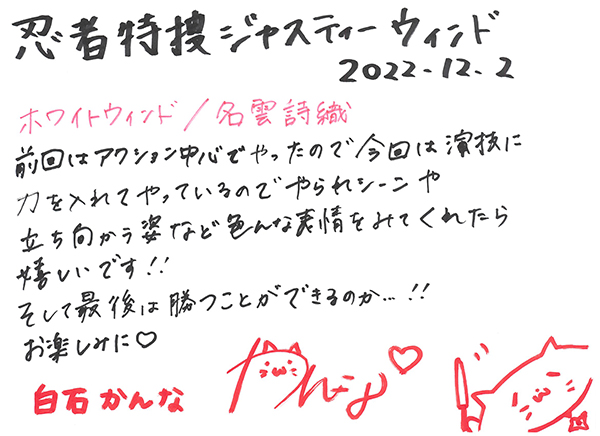 忍者特捜ジャスティーウィンド
2022.12.2
ホワイトウィンド/名雲詩織
前回はアクション中心でやったので今回は演技に
力を入れてやっているのでやられシーンや
立ち向かう姿など色んな表情をみてくれたら
嬉しいです!!
そして最後は勝つことができるのか…!!
お楽しみに♡
白石かんな